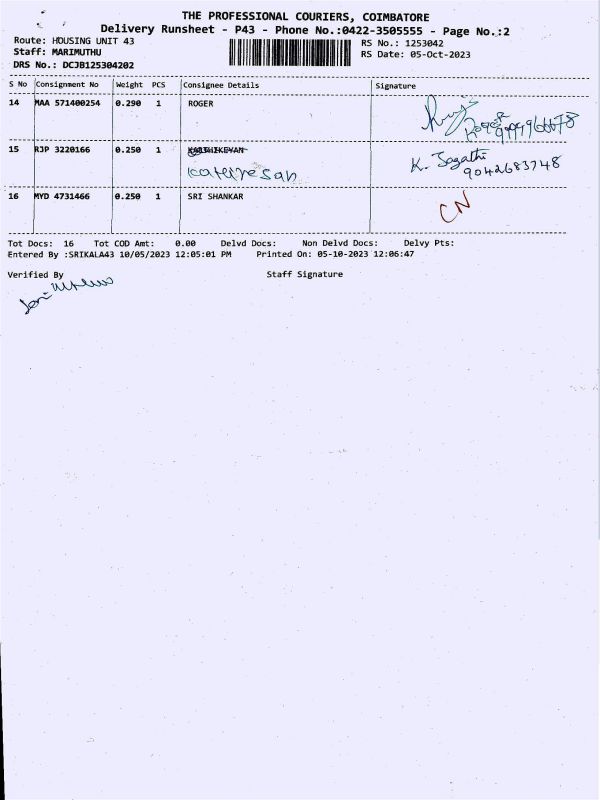 THE PROFESSIONAL COURIERS, COIMBATORE
Delivery Runsheet - P43 - Phone No.:0422-3505555 - Page No.:2
Route: HOUSING UNIT 43
RS No.: 1253042
Staff: MARIMUTHU
RS Date: 05-Oct-2023
DRS No.: DCJB125304202
S No Consignment No Weight PCS Consignee Details Signature
14 MAA 571400254 0.290 1 ROGER
15 RJP 3220166 0.250 1
K. Jegathi
9042683748
16 MYD 4731466 0.250 1 SRI SHANKAR CN
Tot Docs: 16 Tot COD Amt: 0.00 Delvd Docs: Non Delvd Docs: Delvy Pts:
Entered By :SRIKALA43 10/05/2023 12:05:01 PM Printed On: 05-10-2023 12:06:47
Verified By Staff Signature